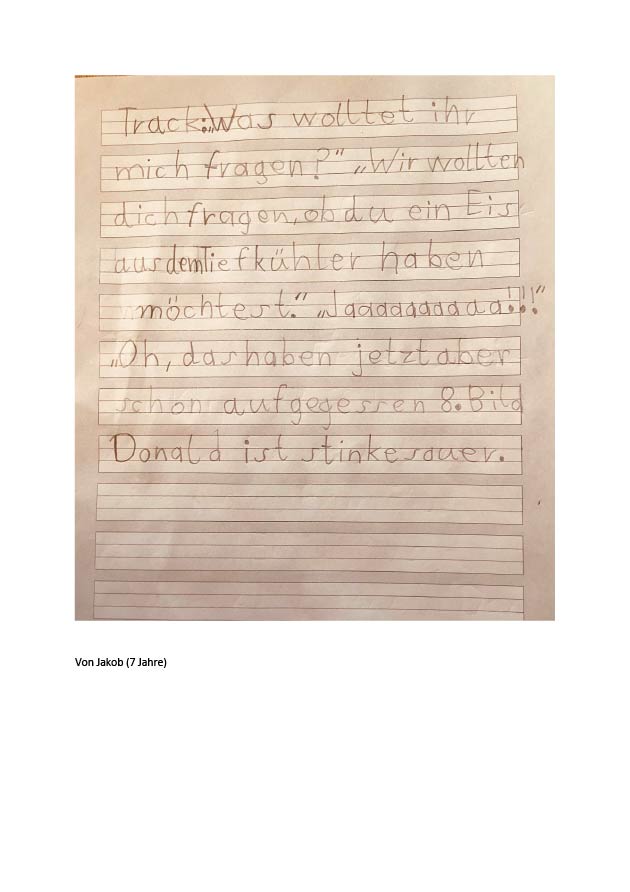 Track: „Was wolltet ihr
mich fragen?" „Wir wollten
dich fragen, ob du ein Eis
aus dem Tiefkühler haben
möchtest." „Jaaaaaaaaaa!!!"
„Oh, das haben jetzt aber
schon aufgegessen 8. Bild
Donald ist stinkesauer.
Von Jakob (7 Jahre)